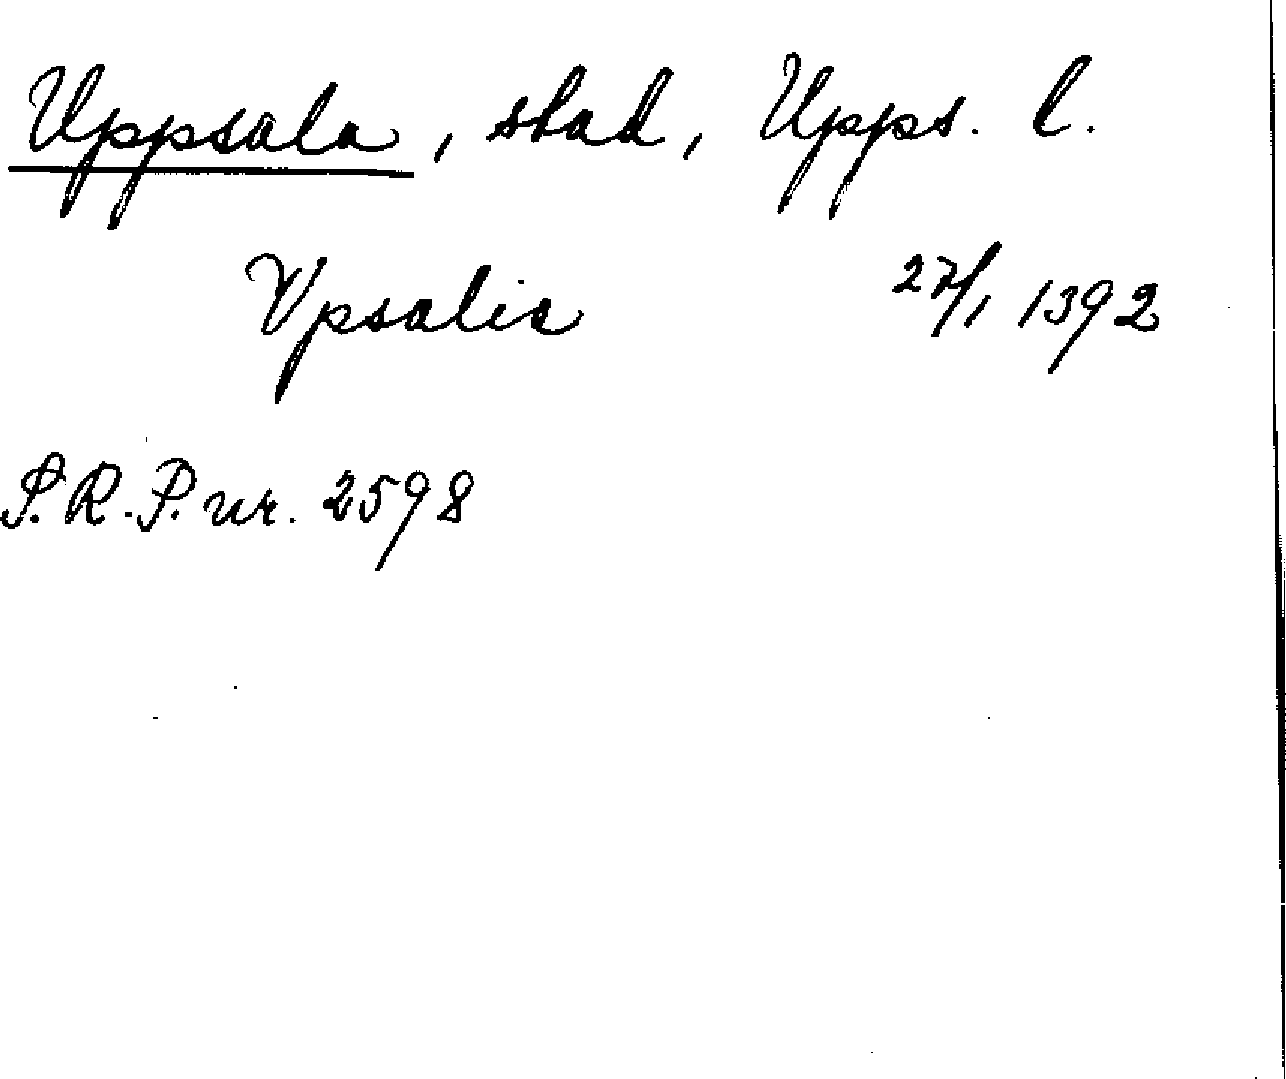 Uppsala, stad, Upps. l.
Vpsalis 27/1 1392
S.R.P. nr. 2598